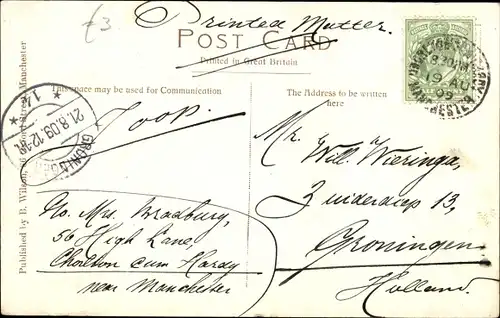 £3
Printed Matter.
POST CARD
Printed in Great Britain
This space may be used for Communication
The Address to be written
here
Joop.
Mr.
Will. Wieringa.
Zuiderdiep 13,
Groningen
Holland.
c/o. Mrs. Bradbury,
56 High Lane,
Chorlton cum Hardy
near Manchester
21.8.09
GRONINGEN
Published by B. Wilson, Oxford Street, Manchester